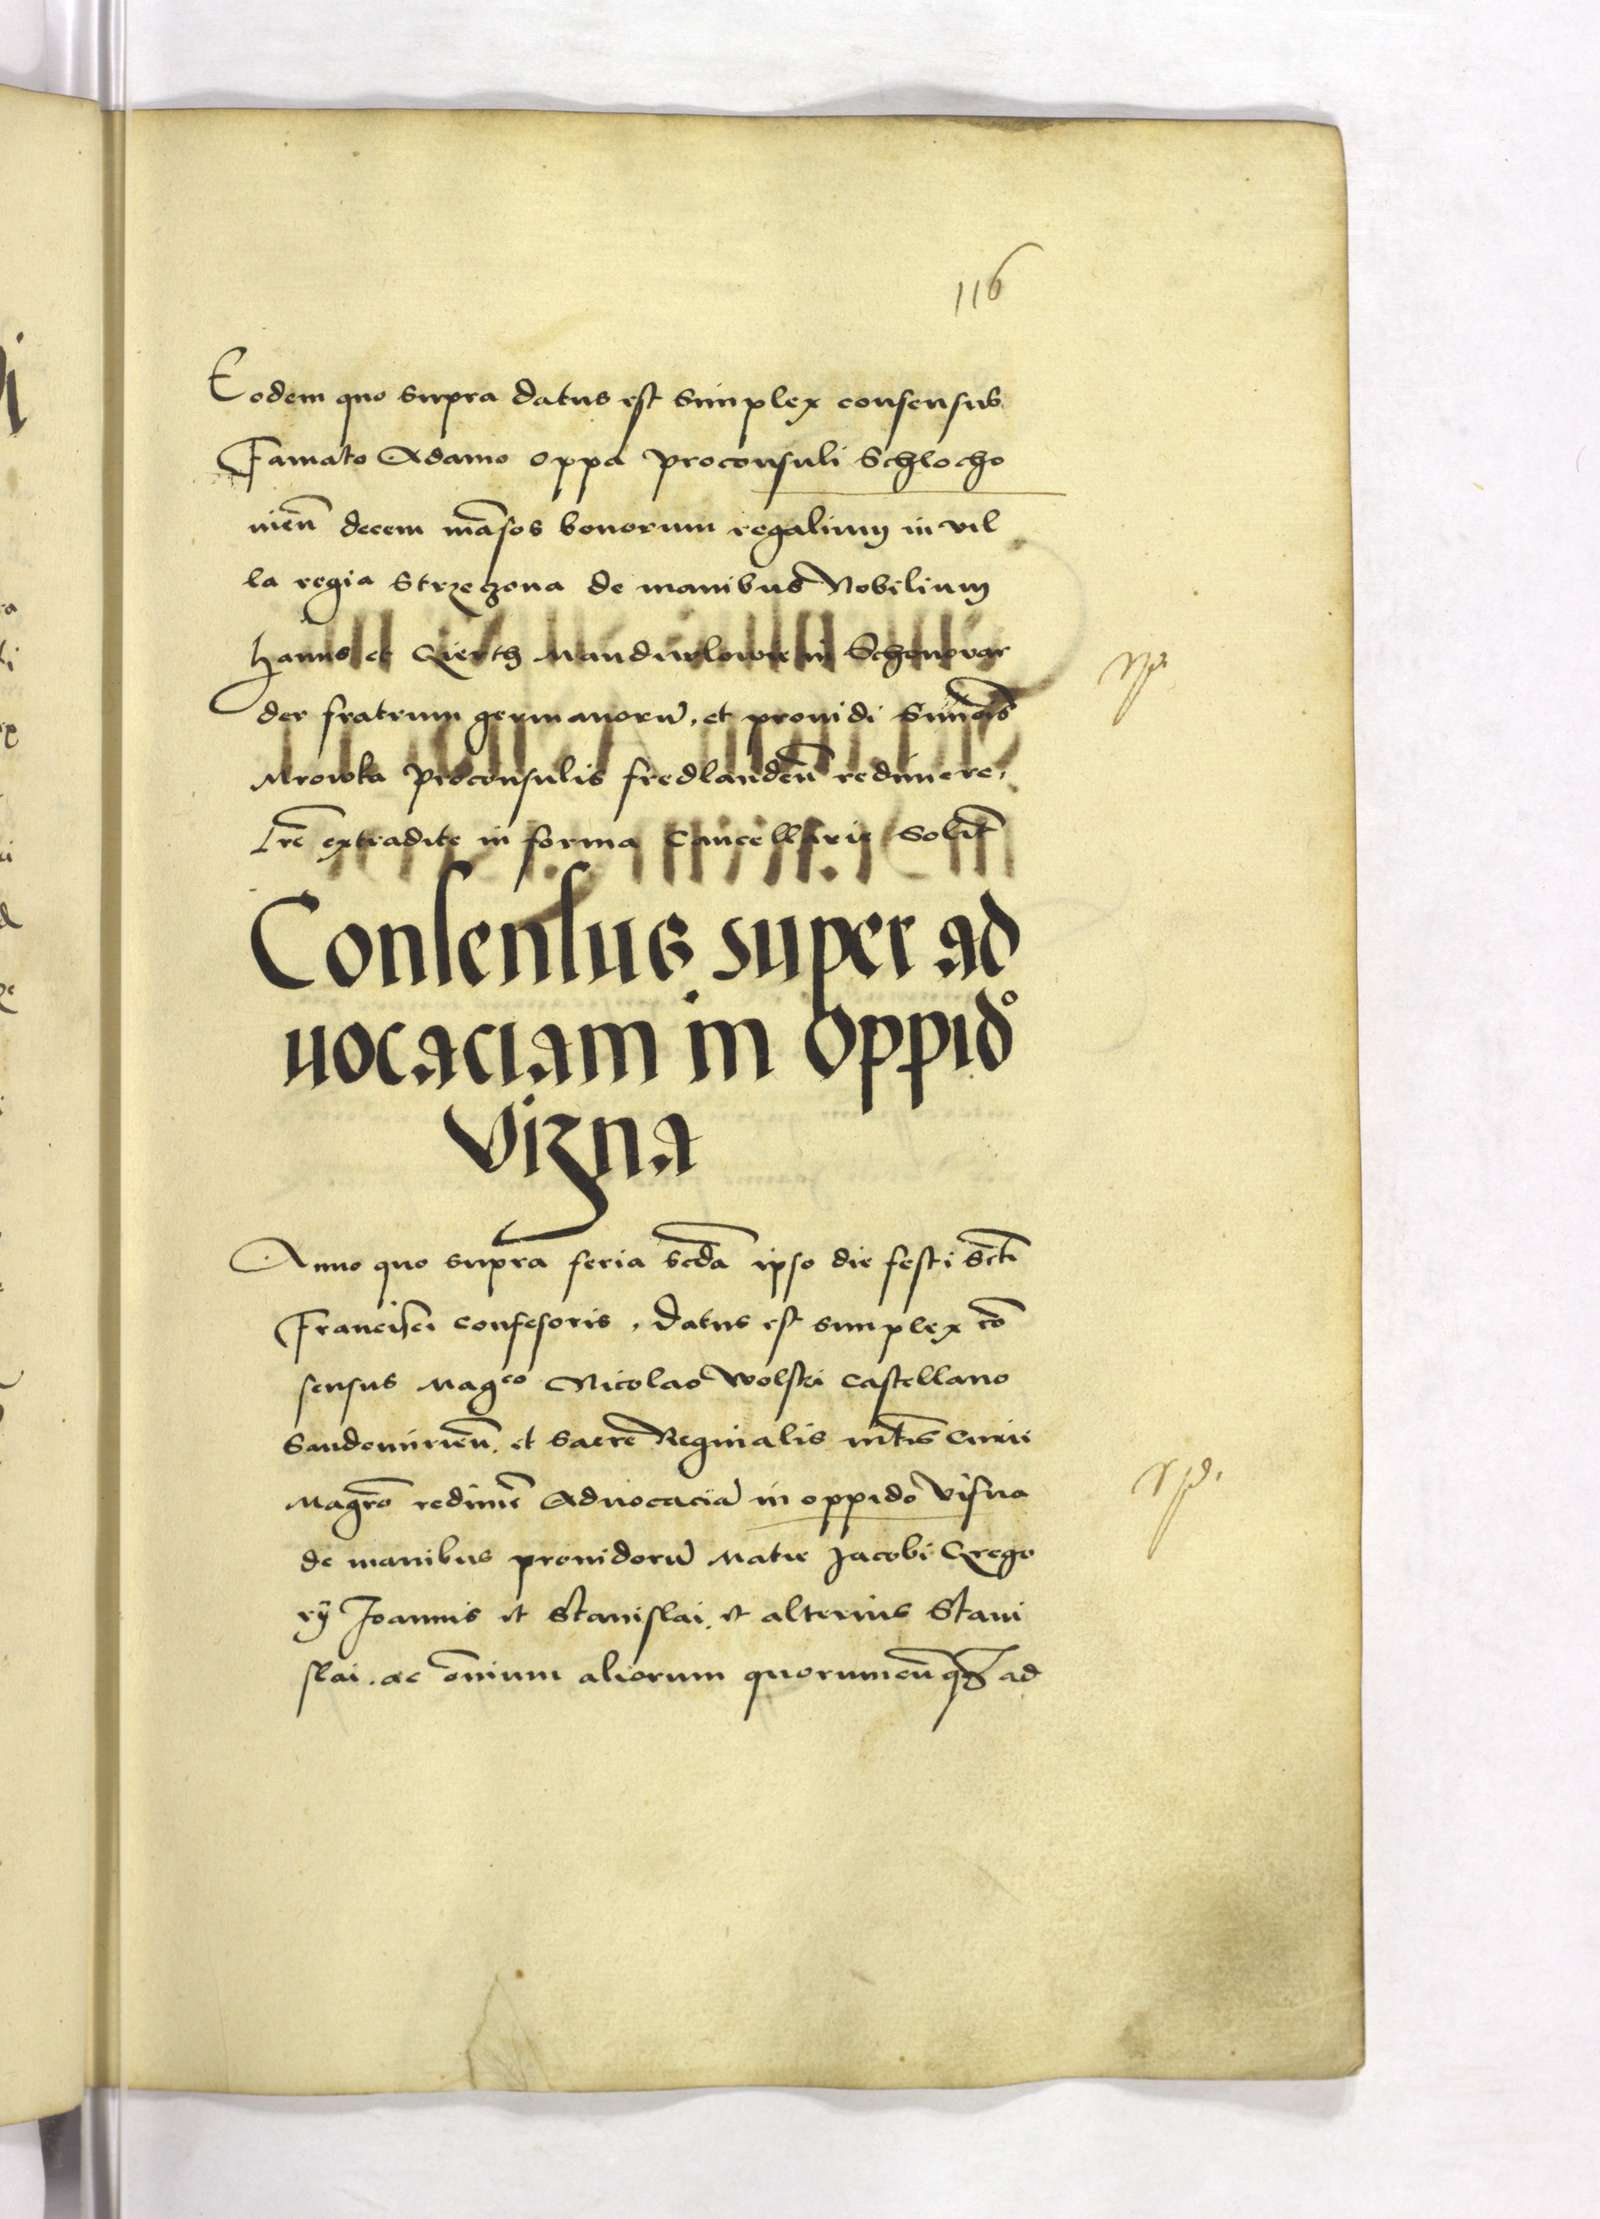 116
Eodem quo supra datus est simplex consensus
Famato Adamo oppa proconsuli Schlocho
nien̄ decem māsos bonorum regalium in vil
la regia Strzeczona de manibus Nobilium
hanns et Qierth Manduwlowie in Schonwar
der fratrum germanorū, et prouidi Simōis
Mrowka proconsulis fredlanden̄ redimere,
Lrē extradite in forma Cancellarie Solit̄
Consensus super ad
uocaciam in oppido
Vizna
Anno quo supra feria scdā ipso die festi Scti
Francisci confesoris, datus est simplex cō
sensus Magco Nicolao Wolski castellano
Sandomirien̄. et sacre Reginalis mt̄is Curie
Magrō redimē Aduocaciā in oppido Visna
de manibus prouidorū Matie Jacobi Grego
rÿ Joannis et Stanislai. et alterius Stani
slai. ac ōnium aliorum quorumcūqz ad